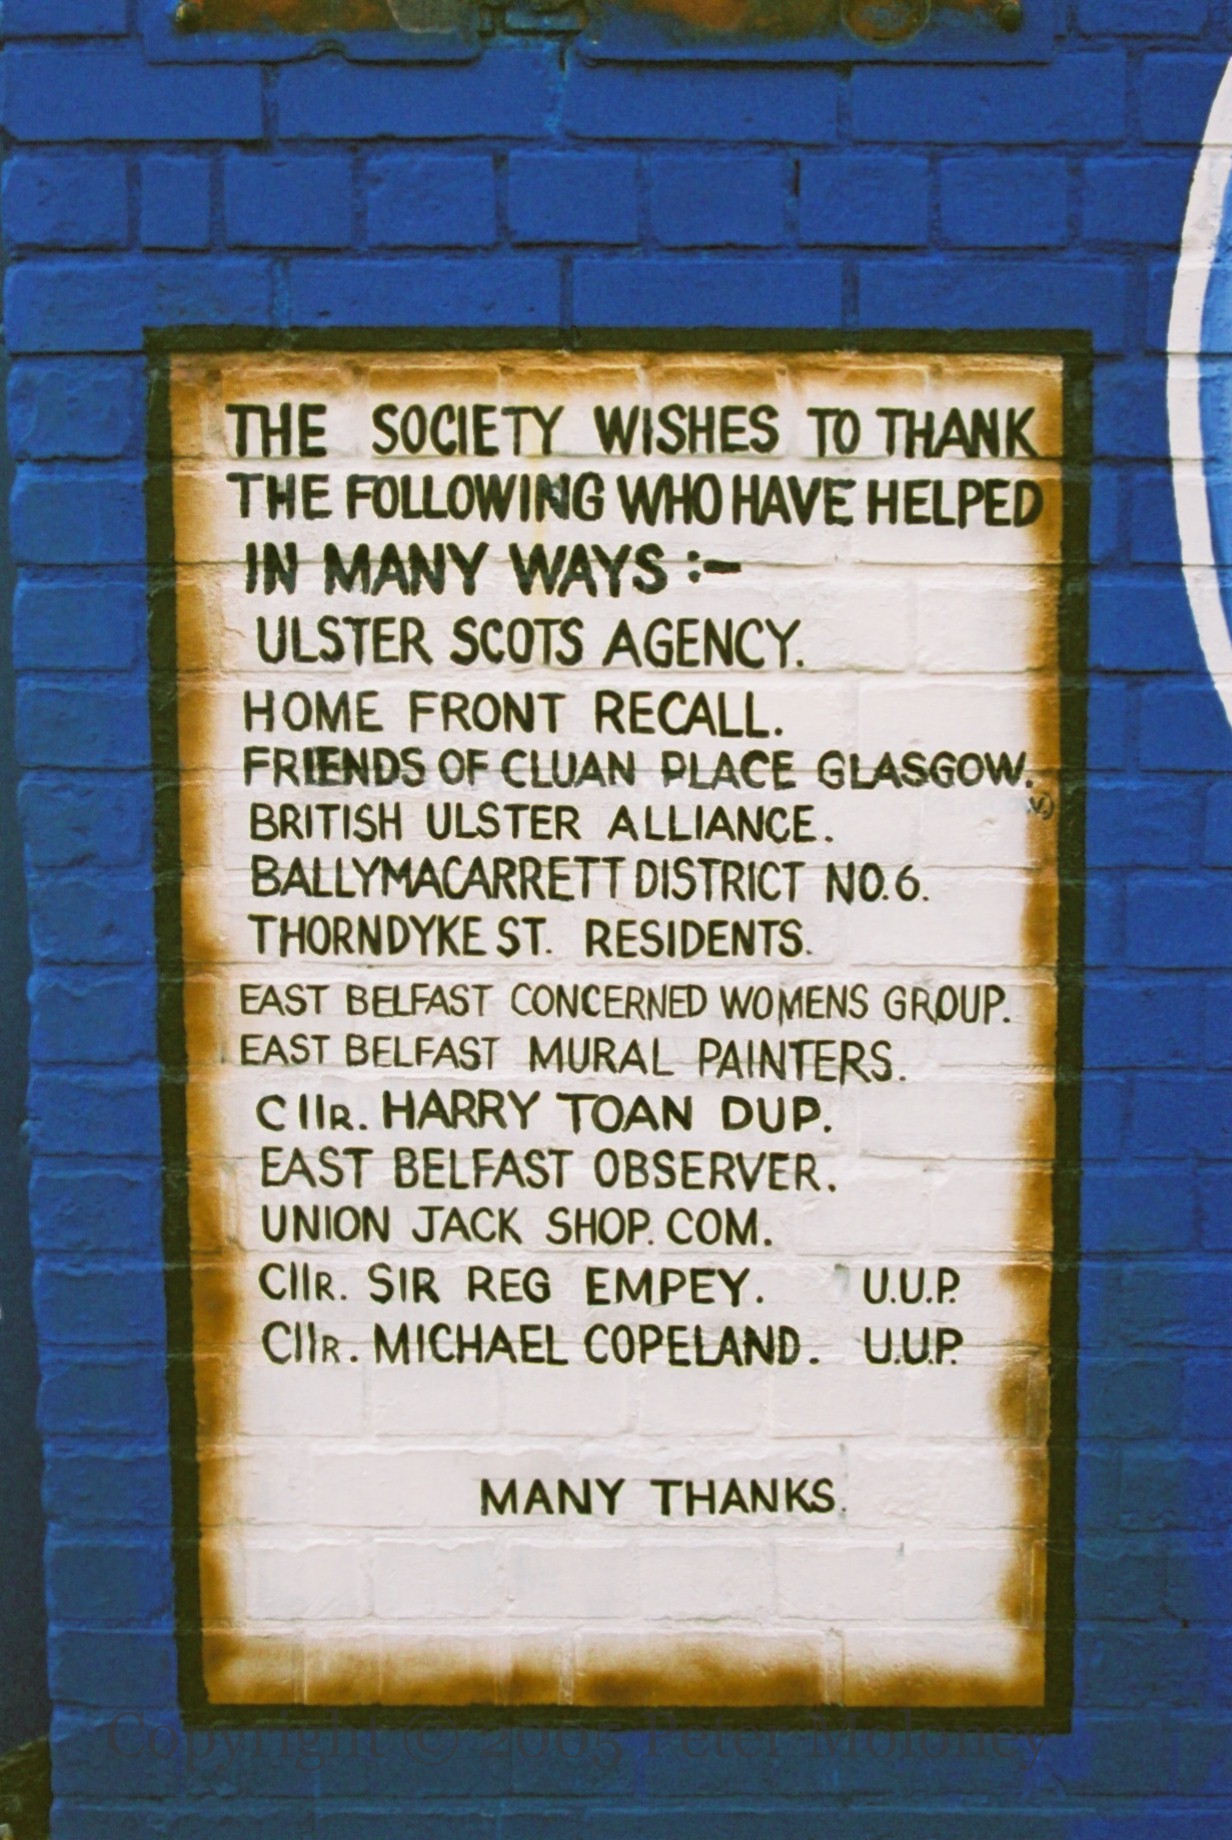 THE SOCIETY WISHES TO THANK
THE FOLLOWING WHO HAVE HELPED
IN MANY WAYS :-
ULSTER SCOTS AGENCY.
HOME FRONT RECALL.
FRIENDS OF CLUAN PLACE GLASGOW.
BRITISH ULSTER ALLIANCE.
BALLYMACARRETT DISTRICT NO.6.
THORNDYKE ST. RESIDENTS.
EAST BELFAST CONCERNED WOMENS GROUP.
EAST BELFAST MURAL PAINTERS.
CllR. HARRY TOAN DUP.
EAST BELFAST OBSERVER.
UNION JACK SHOP. COM.
CllR. SIR REG EMPEY. U.U.P.
CllR. MICHAEL COPELAND. U.U.P.
MANY THANKS.
Copyright © 2005 Peter Moloney